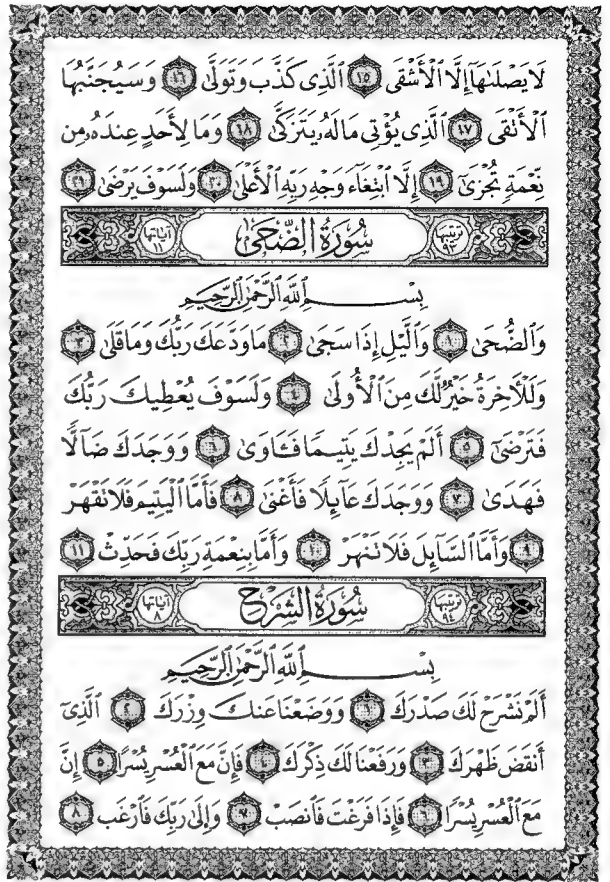 لَا يَصْلَىٰهَآ إِلَّا ٱلْأَشْقَى ١٥ ٱلَّذِى كَذَّبَ وَتَوَلَّىٰ ١٦ وَسَيُجَنَّبُهَا
ٱلْأَتْقَى ١٧ ٱلَّذِى يُؤْتِى مَالَهُۥ يَتَزَكَّىٰ ١٨ وَمَا لِأَحَدٍ عِندَهُۥ مِن
نِّعْمَةٍ تُجْزَىٰٓ ١٩ إِلَّا ٱبْتِغَآءَ وَجْهِ رَبِّهِ ٱلْأَعْلَىٰ ٢٠ وَلَسَوْفَ يَرْضَىٰ ٢١
ترتيبها ٩٣ سُورَةُ الضُّحَىٰ آياتها ١١
بِسْمِ ٱللَّهِ ٱلرَّحْمَٰنِ ٱلرَّحِيمِ
وَٱلضُّحَىٰ ١ وَٱلَّيْلِ إِذَا سَجَىٰ ٢ مَا وَدَّعَكَ رَبُّكَ وَمَا قَلَىٰ ٣
وَلَلْءَاخِرَةُ خَيْرٌ لَّكَ مِنَ ٱلْأُولَىٰ ٤ وَلَسَوْفَ يُعْطِيكَ رَبُّكَ
فَتَرْضَىٰٓ ٥ أَلَمْ يَجِدْكَ يَتِيمًا فَـَٔاوَىٰ ٦ وَوَجَدَكَ ضَآلًّا
فَهَدَىٰ ٧ وَوَجَدَكَ عَآئِلًا فَأَغْنَىٰ ٨ فَأَمَّا ٱلْيَتِيمَ فَلَا تَقْهَرْ
٩ وَأَمَّا ٱلسَّآئِلَ فَلَا تَنْهَرْ ١٠ وَأَمَّا بِنِعْمَةِ رَبِّكَ فَحَدِّثْ ١١
ترتيبها ٩٤ سُورَةُ الشَّرْحِ آياتها ٨
بِسْمِ ٱللَّهِ ٱلرَّحْمَٰنِ ٱلرَّحِيمِ
أَلَمْ نَشْرَحْ لَكَ صَدْرَكَ ١ وَوَضَعْنَا عَنكَ وِزْرَكَ ٢ ٱلَّذِىٓ
أَنقَضَ ظَهْرَكَ ٣ وَرَفَعْنَا لَكَ ذِكْرَكَ ٤ فَإِنَّ مَعَ ٱلْعُسْرِ يُسْرًا ٥ إِنَّ
مَعَ ٱلْعُسْرِ يُسْرًا ٦ فَإِذَا فَرَغْتَ فَٱنصَبْ ٧ وَإِلَىٰ رَبِّكَ فَٱرْغَب ٨